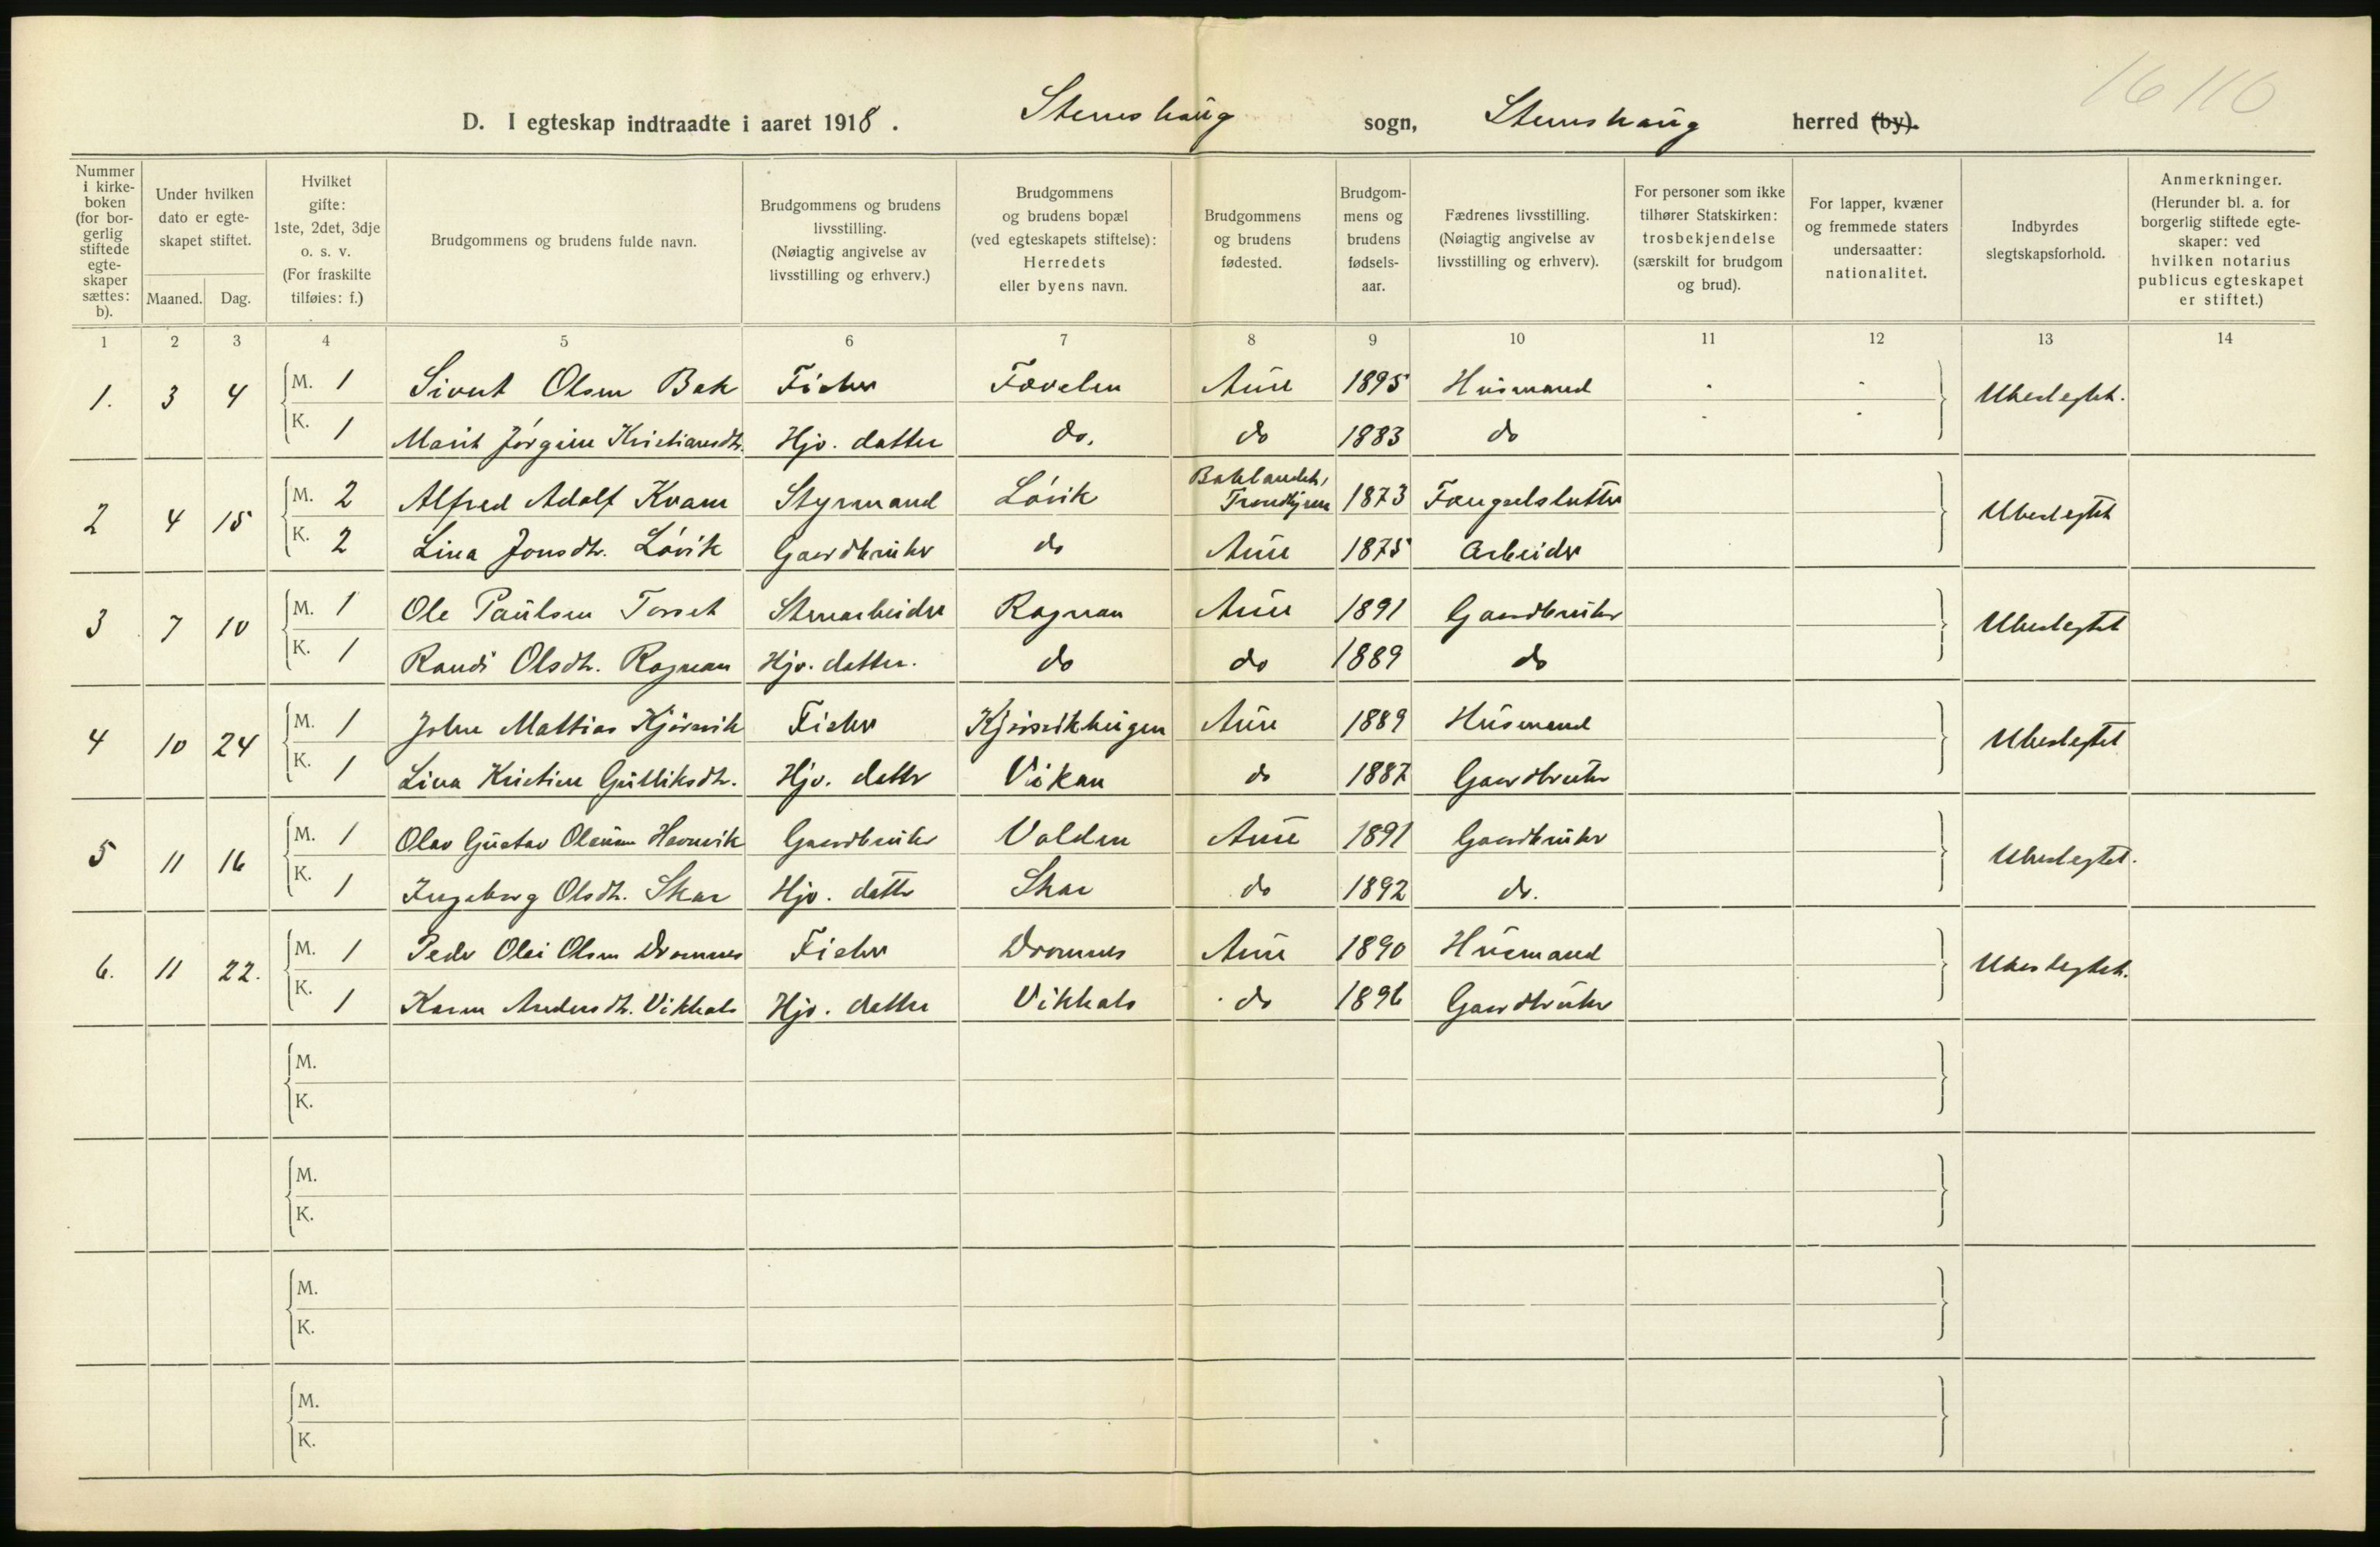 16 110
D. I egteskap indtraadte i aaret 1918. Stemshaug sogn, Stemshaug herred (by).
Nummer i kirkeboken (for borgerlig stiftede egteskaper sættes: b).
Under hvilken dato er egteskapet stiftet.
Maaned. Dag.
Hvilket gifte: 1ste, 2det, 3dje o. s. v. (For fraskilte tilføies: f.)
Brudgommens og brudens fulde navn.
Brudgommens og brudens livsstilling. (Nøiagtig angivelse av livsstilling og erhverv.)
Brudgommens og brudens bopæl (ved egteskapets stiftelse): Herredets eller byens navn.
Brudgommens og brudens fødested.
Brudgommens og brudens fødselsaar.
Fædrenes livsstilling. (Nøiagtig angivelse av livsstilling og erhverv).
For personer som ikke tilhører Statskirken: trosbekjendelse (særskilt for brudgom og brud).
For lapper, kvæner og fremmede staters undersaatter: nationalitet.
Indbyrdes slegtskapsforhold.
Anmerkninger. (Herunder bl. a. for borgerlig stiftede egteskaper: ved hvilken notarius publicus egteskapet er stiftet.)
1 2 3 4 5 6 7 8 9 10 11 12 13 14
1. 3 4 M. 1 Sivert Olsen Bak Fisker Fovelen Aure 1895 Husmand Ubeslegtet.
K. 1 Marit Jørgine Kristiansdtr. Hjv. datter do. do 1883 do
2 4 15 M. 2 Alfred Adolf Kvam Styrmand Løvik Baklandet, Trondhjem 1873 Fængselslutter Ubeslegtet
K. 2 Lina Jonsdtr. Løvik Gaardbruker do Aure 1875 Arbeider
3 7 10 M. 1 Ole Paulsen Torset Stenarbeider Rognan Aure 1891 Gaardbruker Ubeslegtet
K. 1 Randi Olsdtr. Rognan Hjv. datter. do do 1889 do
4 10 24 M. 1 Johan Mathias Kjørsvik Fisker Kjørsvikbugen Aure 1889 Husmand Ubeslegtet
K. 1 Lina Kristine Gulliksdtr. Hjv. datter Vikan do 1887 Gaardbruker
5 11 16 M. 1 Olav Gustav Olausen Havnvik Gaardbruker Volden Aure 1891 Gaardbruker Ubeslegtet.
K. 1 Ingeborg Olsdtr. Skar Hjv. datter Skar do 1892 do.
6. 11 22. M. 1 Peder Olai Olsen Dromnes Fisker Dromnes Aure 1890 Husmand Ubeslegtet.
K. 1 Karen Andersdtr. Vikhals Hjv. datter Vikhals do 1896 Gaardbruker
M.
K.
M.
K.
M.
K.
M.
K.